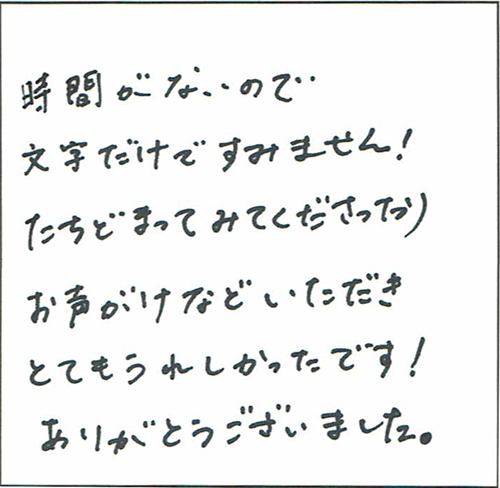 時間がないので
文字だけですみません!
たちどまってみてくださったり
お声がけなどいただき
とてもうれしかったです!
ありがとうございました。